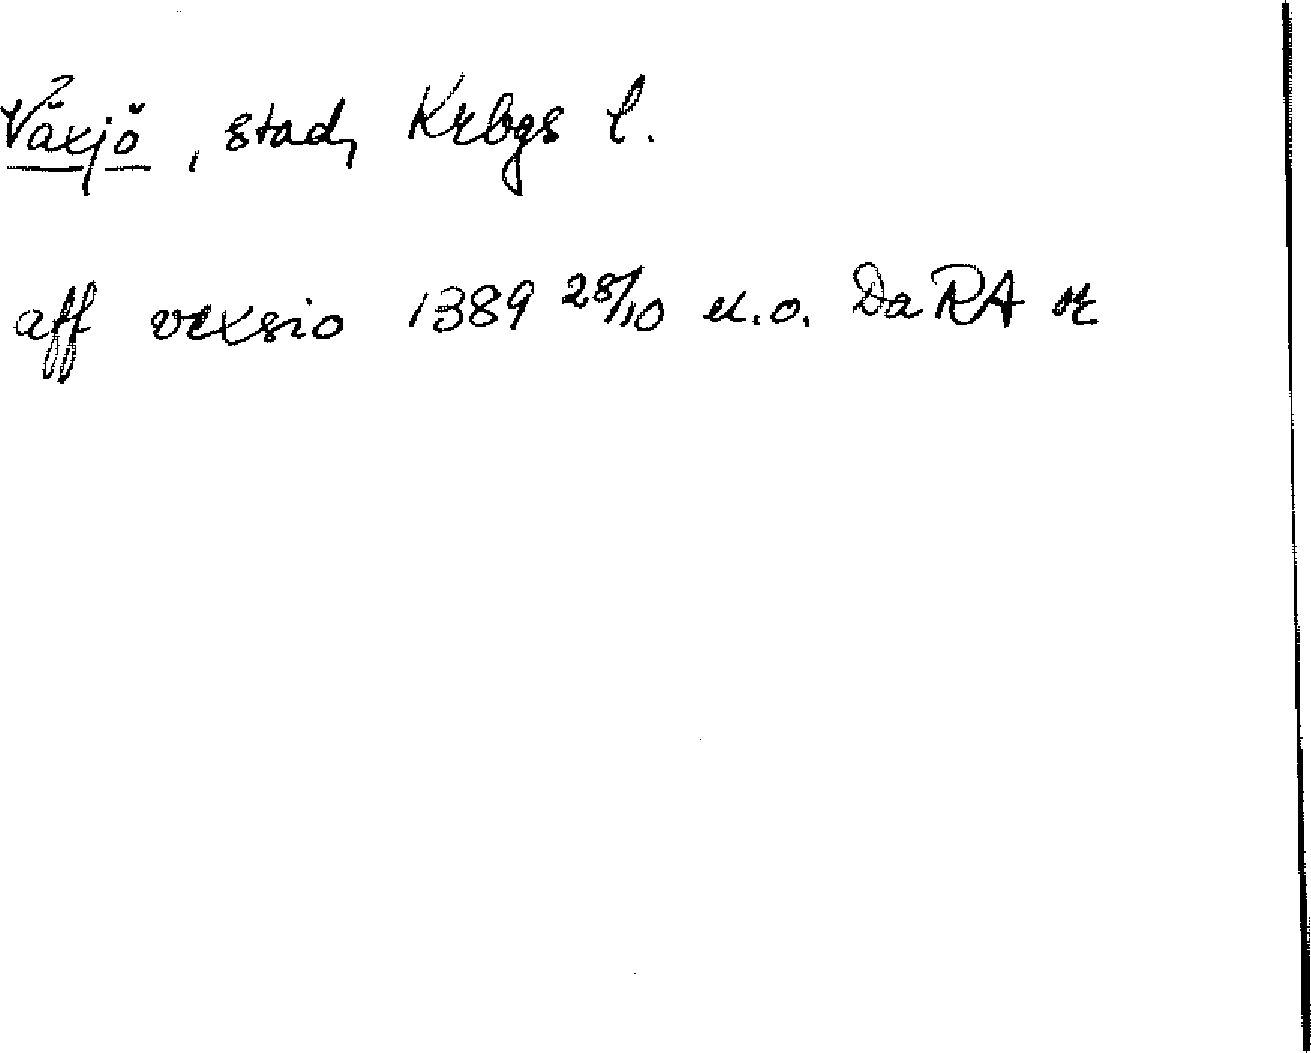 Växjö, stad, Krbgs l.
aff vexsio 1389 28/10 u.o. DaRA or